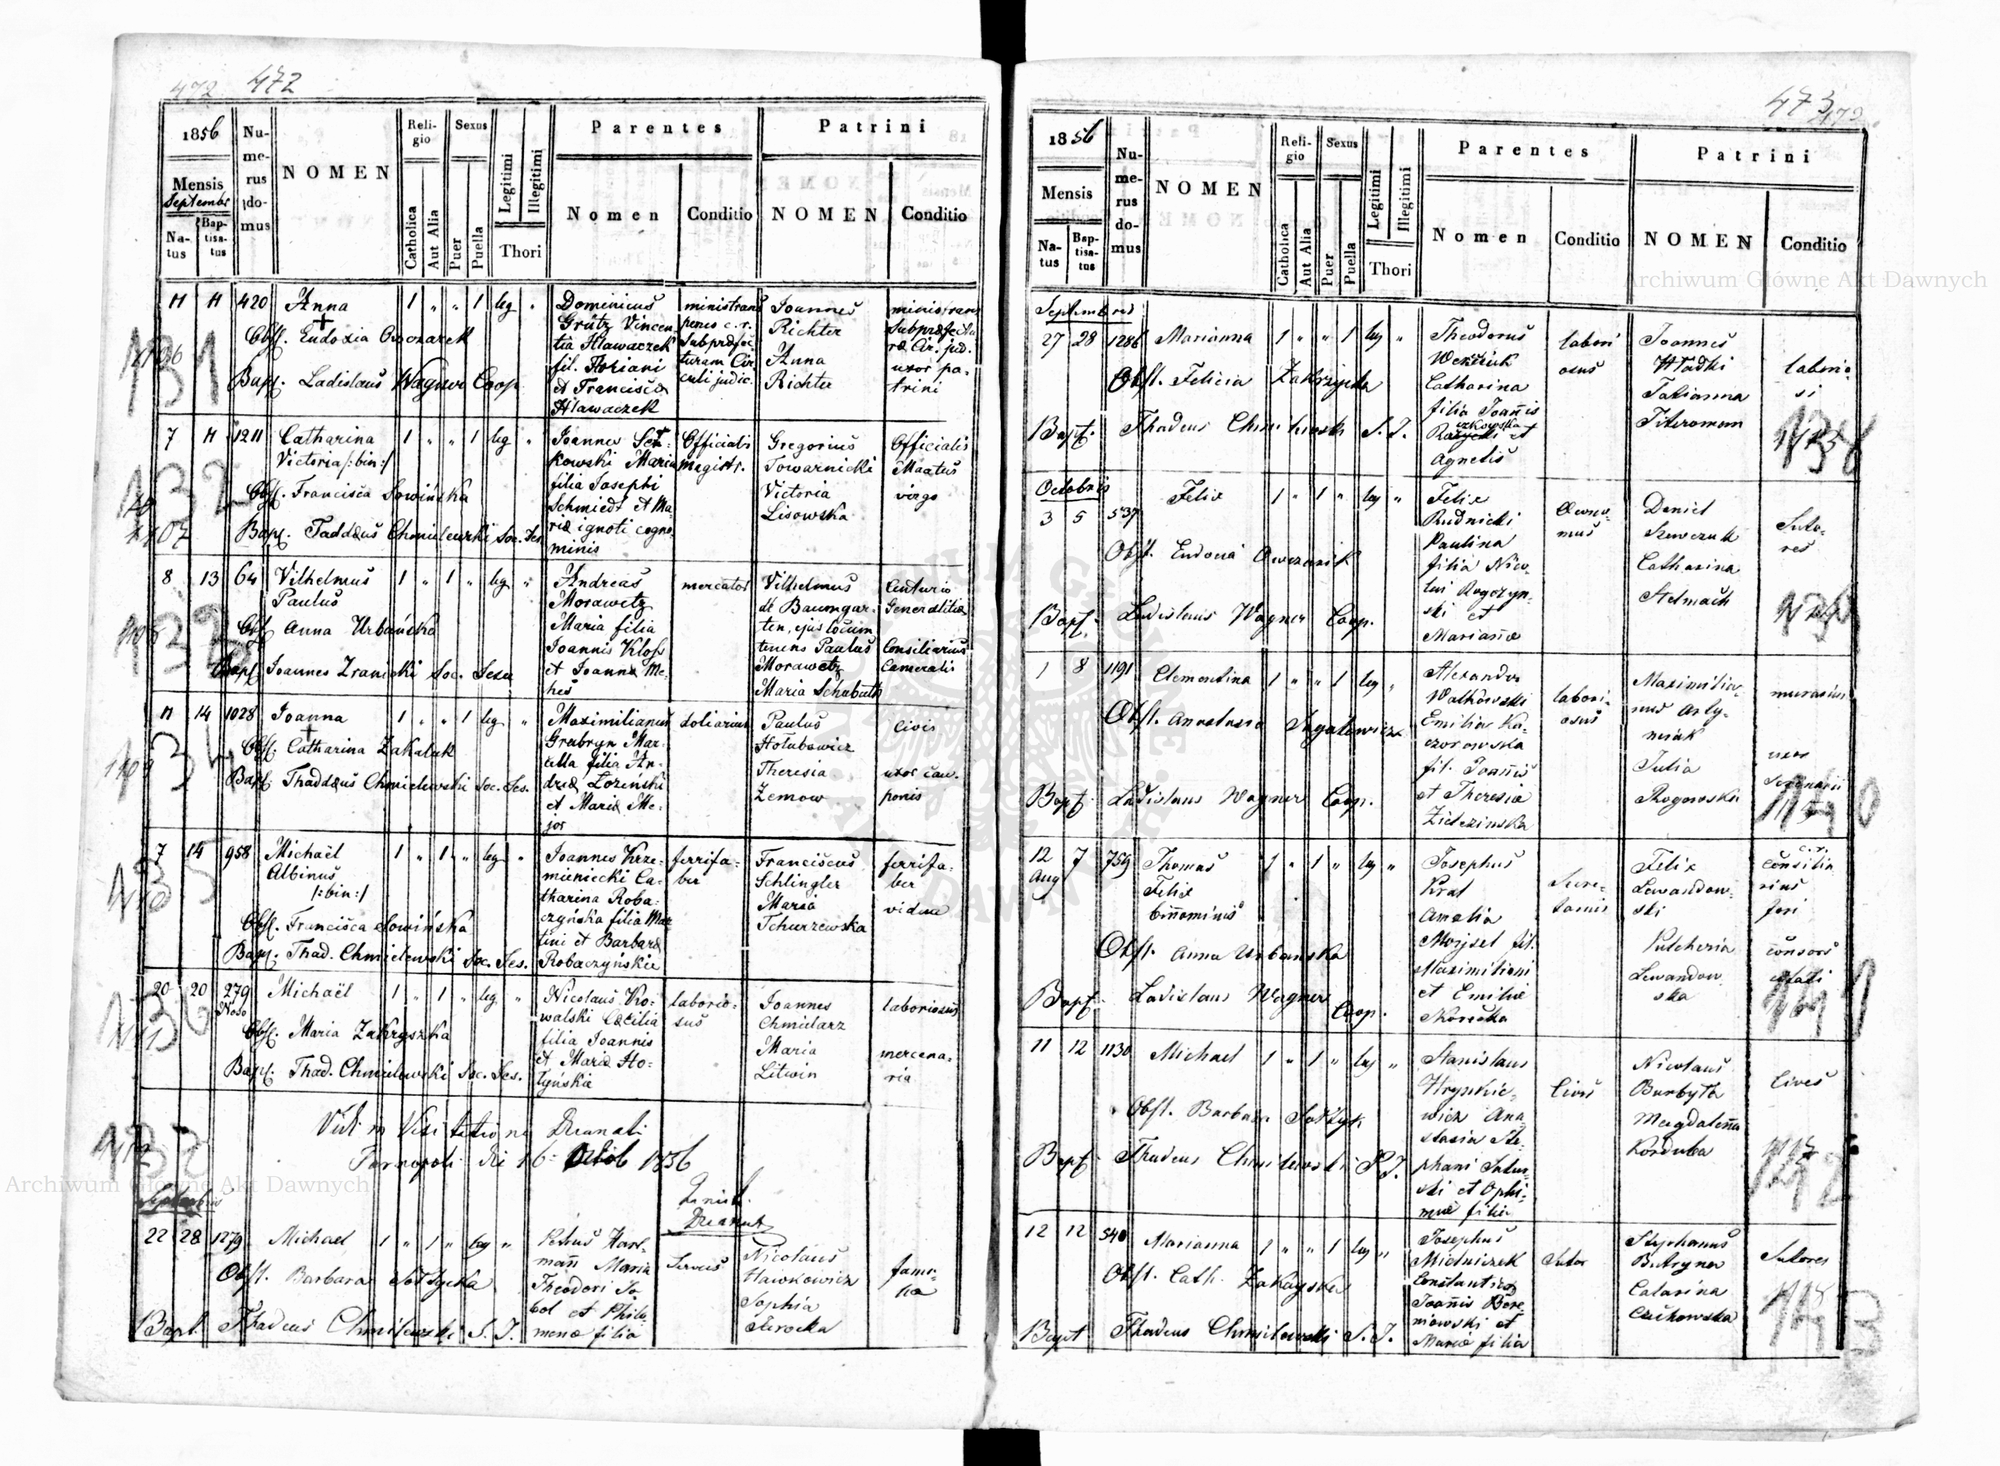 472 472
1856
Mensis
Septembr
Natus
Baptisatus
Numerus domus
NOMEN
Religio
Catholica
Aut Alia
Sexus
Puer
Puella
Legitimi
Illegitimi
Thori
Parentes
Nomen
Conditio
Patrini
NOMEN
Conditio
11 11 420 Anna 1 " " 1 leg "
Obst. Eudoxia Owczarek
Bapt. Ladislaus Wagner Coop.
Dominicus
Grütz Vincen
tia Hlawaczek
fil. Floriani
et Francisca
Hlawaczek
ministrans
penes c. r.
Subpræfec
turam Cir
culi judic.
Joannes
Richter
Anna
Richter
ministrans
Subpræfectu
ræ Cir. jud.
uxor pa-
trini
131
7 11 1211 Catharina 1 " " 1 leg "
Victoria /:bin:/
Obst. Francisca Sowińska
Bapt. Taddæus Chmielewski Soc. Jes
Joannes
kowski Maria
filia Josephi
Schmiedt et Ma
riæ ignoti cogno
minis
Officialis
magistr.
Gregorius
Towarnicki
Victoria
Lisowska
Officialis
Maatus
virgo
132
1107
8 13 64 Vilhelmus 1 " 1 " leg "
Paulus
Obst Anna Urbańska
Bapt Joannes Zranicki Soc. Jesu
Andreas
Morawetz
Maria filia
Joannis Klos
et Joannæ Me-
hes
mercator
Vilhelmus
de Baumgar-
ten, ejus locum
tenens Paulus
Morawetz
Maria Schabuth
Centurio
Generalitiæ
Consiliarius
Cameralis
11 14 1028 Joanna 1 " " 1 leg "
Obst. Catharina Zakaluk
Bapt. Thaddæus Chmielewski Soc. Jes.
Maximilianus
Grabryn Mar-
cella filia An-
dreæ Łozeński
et Mariæ Me-
jor
doliarius
Paulus
Hołubowicz
Theresia
Zemow
Civis
uxor cau-
ponis
134
1109
7 14 958 Michaël 1 " 1 " leg "
Albinus
/:bin:/
Obst. Francisca Sowińska
Bapt. Thad. Chmielewski Soc. Jes.
Joannes Krze-
mieniecki Ca-
tharina Roba-
czyńska filia Mar
tini et Barbaræ
Robaczyńskie
ferrifa-
ber
Franciscus
Schlingler
Maria
Tchurzewska
ferrifa-
ber
vidua
135
1110
20 20 279 Michaël 1 " 1 " leg "
Nowo
Obst. Maria Zakrzyszka
Bapt. Thad. Chmielewski Soc. Jes.
Nicolaus Ko-
walski Cæcilia
filia Joannis
et Mariæ Ho-
łyńskia
laborio-
sus
Joannes
Chmielarz
Maria
Litwin
laboriosus
mercena-
ria
136
1111
Vidi in Visitatione Decanali
Tarnopoli die 16 Octob 1856
Decanus
Septembris
22 28 1279 Michael 1 " 1 " leg "
Obst. Barbara Sołtycka
Bapt. Thadeus Chmilewski S. J.
Petrus Hart-
mañ Maria
Theodori So
bol et Philo
menæ filia
Servus
Nicolaus
Hawkowicz
Sophia
famu-
lia
473 472
1856
Mensis
Natus
Baptisatus
Numerus domus
NOMEN
Religio
Catholica
Aut Alia
Sexus
Puer
Puella
Legitimi
Illegitimi
Thori
Parentes
Nomen
Conditio
Patrini
NOMEN
Conditio
Septembris
27 28 1286 Marianna 1 " " 1 leg "
Obst. Felicia Zakrzycka
Bapt. Thadeus Chmilewski S. J.
Theodorus
Catharina
filia Joañis
et
Agnetis
labori
osus
Joannes
Hładki
Tatianna
laborio-
si
138
Octobris
3 5 537 Felix 1 " 1 " leg "
Obst. Eudoxia Owczarik
Bapt. Ladislaus Wagner Coop.
Felix
Rudnicki
Paulina
filia Nico-
lai Rogozyn-
ski et
Mariañæ
Oecono-
mus
Daniel
Szewczuk
Catharina
Stelmach
Suto-
res
139
1 8 1191 Clementina 1 " " 1 leg "
Obst. Anastasia
Bapt. Ladislaus Wagner Coop.
Alexander
Watkowski
Emilia Ka-
czorowska
fil. Joañis
et Theresiæ
Zielezinska
labori-
osus
Maximilia-
nus Arty-
niak
Julia
Rogowska
murarius
uxor
1140
12 7 759 Thomas 1 " 1 " leg "
Aug
Felix
biñominis
Obst. Anna Urbanska
Bapt. Ladislaus Wagner Coop.
Josephus
Krat
Amalia
Mojsel fil.
Maximiliani
et Emiliæ
Secre-
tarius
Felix
Lewandow-
ski
Pulcheria
Lewandow
ska
c. r.
Consilia
rius
fori
Consors
1141
11 12 1130 Michael 1 " 1 " leg "
Obst. Barbara Sołtyk
Bapt. Thadeus Chmilewski S. J.
Stanislaus
Hrynkie-
wicz Ana
stasia Ste-
phani
ski et Ophi-
miæ filia
Civis
Nicolaus
Burbyła
Magdaleña
Korduba
Cives
1142
12 12 540 Marianna 1 " " 1 leg "
Obst. Cath. Zakayska
Bapt Thadeus Chmilewski S. J.
Josephus
Mielniczek
Constantia
Joañis Bore
niowski et
Mariæ filia
Sutor
Stephanus
Butryna
Catarina
Czitkowska
Sutores
1143
Archiwum Główne Akt Dawnych
Archiwum Główne Akt Dawnych
ARCHIWUM GŁÓWNE AKT DAWNYCH